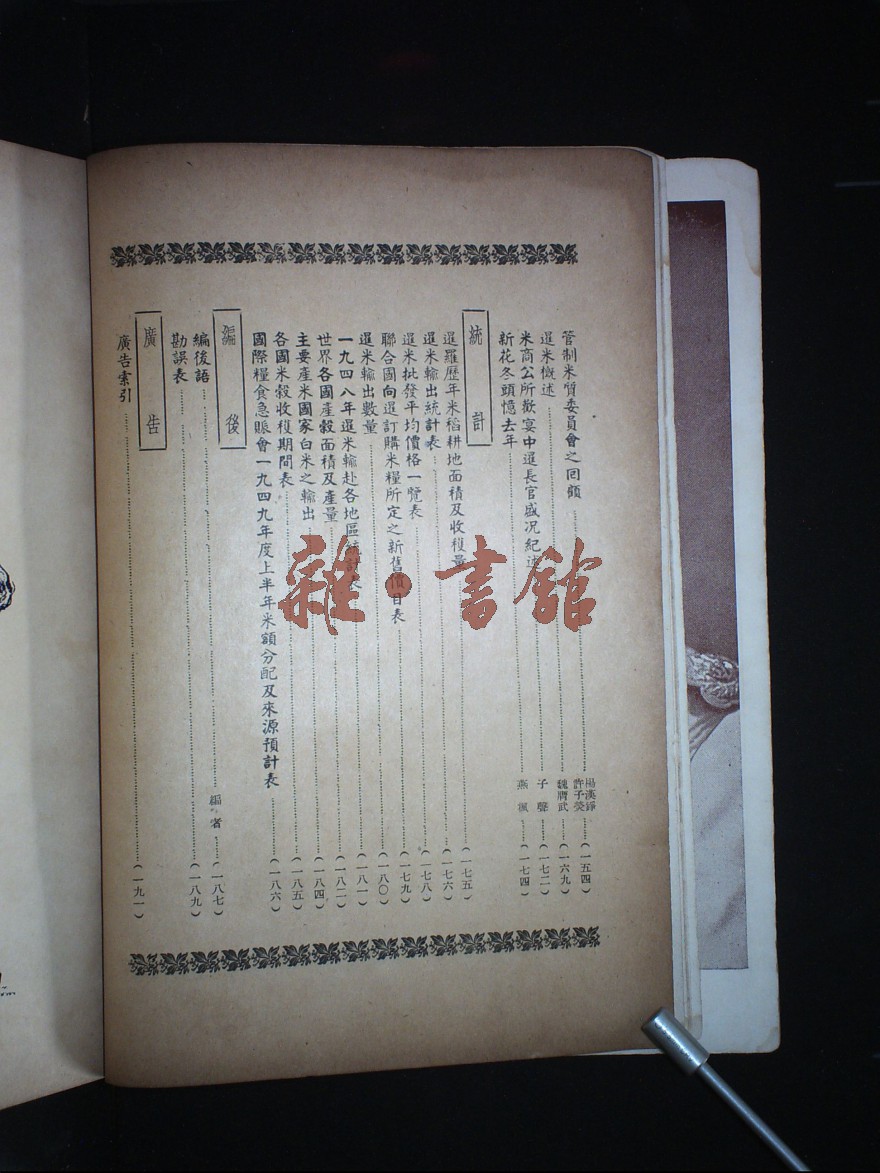 管制米質委員會之回顧……楊漢錚 許子熒……(一五四)
暹米概述……魏膺武……(一六九)
米商公所歡宴中暹長官盛况紀述……子聲……(一七二)
新花冬頭憶去年……燕楓……(一七四)
統計
暹羅歷年米稻耕地面積及收穫量……(一七五)
暹米輸出統計表……(一七六)
暹米批發平均價格一覽表……(一七八)
聯合國向暹訂購米糧所定之新舊價目表……(一七九)
暹米輸出數量……(一八〇)
一九四八年暹米輸赴各地區統計表……(一八一)
世界各國產穀面積及產量……(一八二)
主要產米國家白米之輸出……(一八四)
各國米穀收穫期間表……(一八五)
國際糧食急賑會一九四九年度上半年米額分配及來源預計表……(一八六)
編後
編後語……編者……(一八七)
勘誤表……(一八九)
廣告
廣告索引……(一九一)
雜·書館